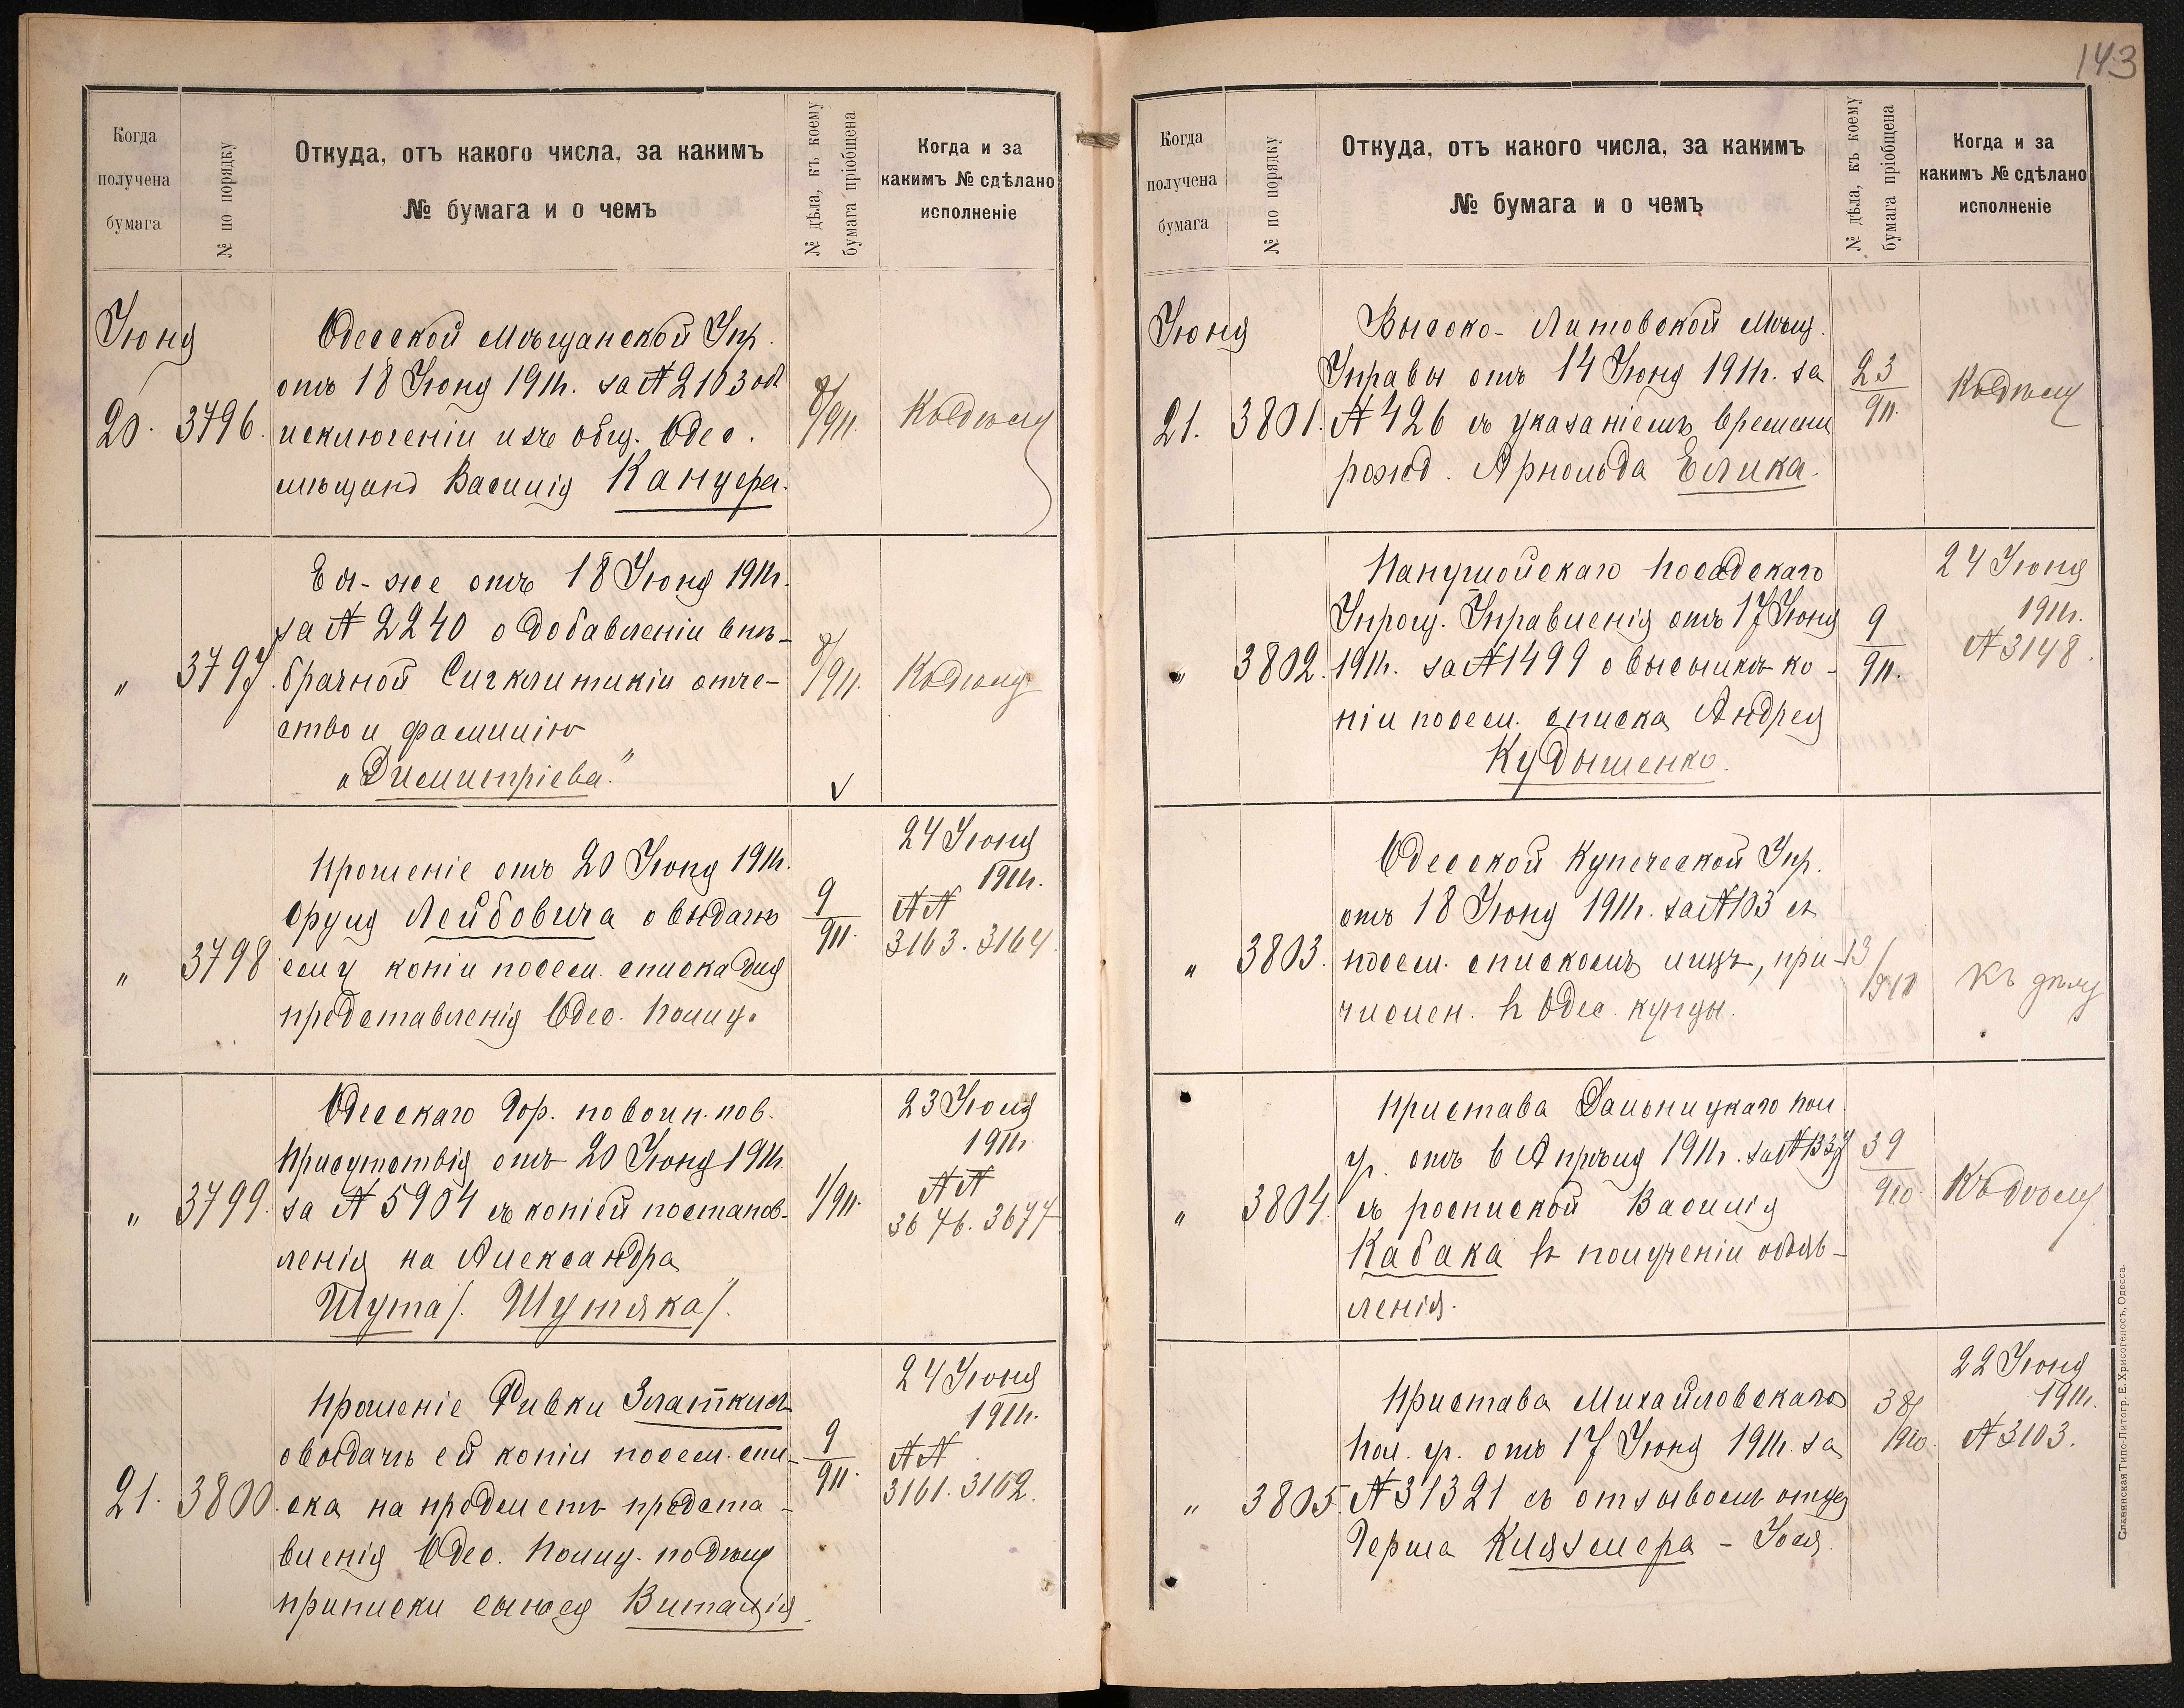 143
Когда
получена
бумага
№ по порядку
Откуда, отъ какого числа, за какимъ
№ бумага и о чемъ
№ дѣла, къ коему
бумага пріобщена
Когда и за
какимъ № сдѣлано
исполненіе
Іюня
20. 3796.
Одесской Мѣщанской Упр.
отъ 18 Іюня 1911г. за № 2103 об
исключеніи изъ общ. Одес.
мѣщанъ Василія Канцера.
8/911.
Къ дѣлу
" 3797.
Ея-же отъ 18 Іюня 1911г.
за № 2240 о добавленіи внѣ-
брачной Сигклитикіи отче-
ство и фамилію
"Димитріева."
8/911.
Къ дѣлу
" 3798
Прошеніе отъ 20 Іюня 1911г.
Сруля Лейбовича о выдачѣ
ему копіи посем. списка для
представленія Одес. Полиц.
9/911.
24 Іюня
1911г.
№№
3163. 3164.
" 3799.
Одесскаго Гор. по воин. пов.
Присутствія отъ 20 Іюня 1911г.
за № 5904 съ копіей постанов-
ленія на Александра
Шута /. Шутяка/.
1/911.
23 Іюня
1911г.
№№
3676. 3677
21. 3800.
Прошеніе Ривки Златкиса
о выдачѣ ей копіи посем. спи-
ска на предметъ предста-
вленія Одес. Полиц. по дѣлу
приписки сына ея Виталія.
9/911.
24 Іюня
1911г.
№№
3161. 3162.
Когда
получена
бумага
№ по порядку
Откуда, отъ какого числа, за какимъ
№ бумага и о чемъ
№ дѣла, къ коему
бумага пріобщена
Когда и за
какимъ № сдѣлано
исполненіе
Іюня
21. 3801.
Высоко-Литовской Мѣщ.
Управы отъ 14 Іюня 1911г. за
№ 426 съ указаніемъ времени
рожд. Арнольда Елика.
23/911.
Къ дѣлу
" 3802.
Папушойскаго Посадскаго
Упрощ. Управленія отъ 17 Іюня
1911г. за № 1499 о высылкѣ ко-
піи посем. списка Андрея
Кудышенко.
9/911.
24 Іюня
1911г.
№ 3148.
" 3803.
Одесской Купеческой Упр.
отъ 18 Іюня 1911г. за № 103 съ
посем. спискомъ лицъ, при-
числен. въ Одес. купцы.
13/910
Къ дѣлу
" 3804.
Пристава Дальницкаго пол.
уч. отъ 6 Апрѣля 1911г. за № 1337
съ роспиской Василія
Кабака въ полученіи объяв-
ленія.
39/910.
Къ дѣлу
" 3805.
Пристава Михайловскаго
пол. уч. отъ 17 Іюня 1911г. за
№ 31321 съ отзывомъ отца
Герша Клязмера - Іося.
38/910.
22 Іюня
1911г.
№ 3103.
Славянская Типо-Литогр. Е. Хрисогелосъ, Одесса.